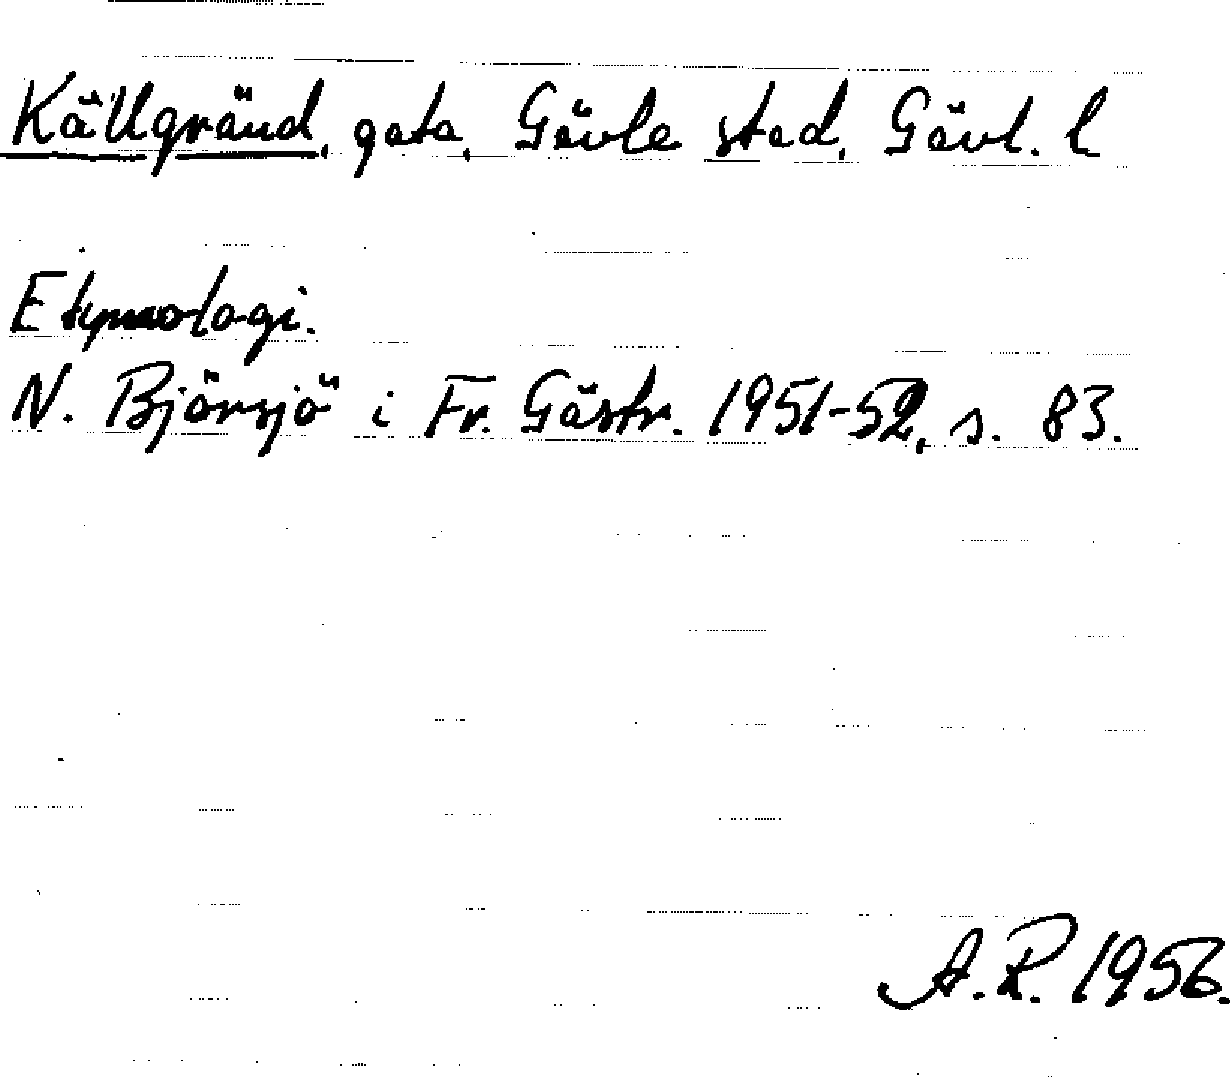 Källgränd, gata, Gävle stad, Gävl. l
Etymologi.
N. Björsjö i Fr. Gästr. 1951-52, s. 83.
A.R. 1956.